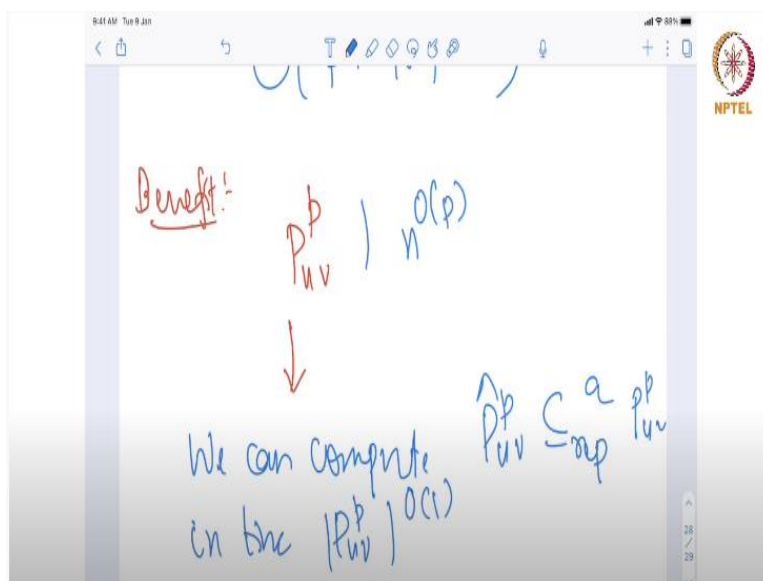 9:41 AM Tue 9 Jan
88%
NPTEL
Benefit:-
P_{uv}^{p} ) n^{O(p)}
We can compute \hat{P}_{uv}^{p} ⊆_{rep}^{q} P_{uv}^{p}
in time |P_{uv}^{p}|^{O(1)}
28
/
29